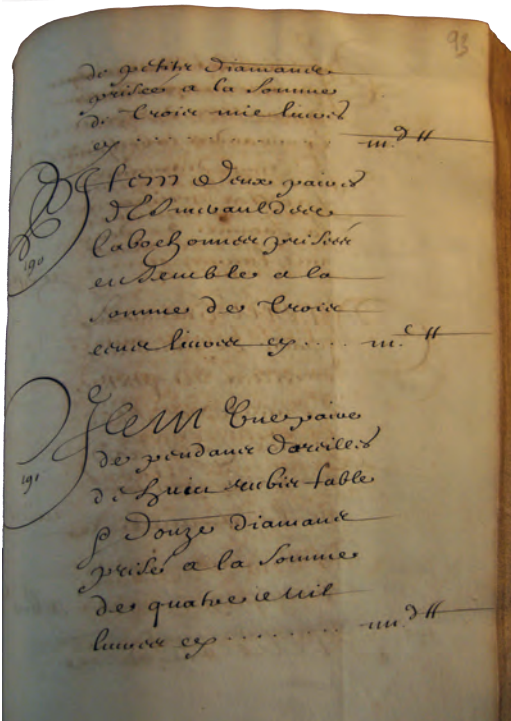 93
de petitz diamans
prisée a la somme
de trois mil livres
cy . . . . . . . . iii.ᵐ ₶
190 Item deux paires
d'Esmerauldes
cabochonnées prisées
ensemble a la
somme de trois
cens livres cy . . . . iii.ᶜ ₶
191 Item une paire
de pendans d'oreilles
de huict rubis table
& douze diamans
prisé a la somme
de quatre mil
livres cy . . . . . . . . iiii.ᵐ ₶